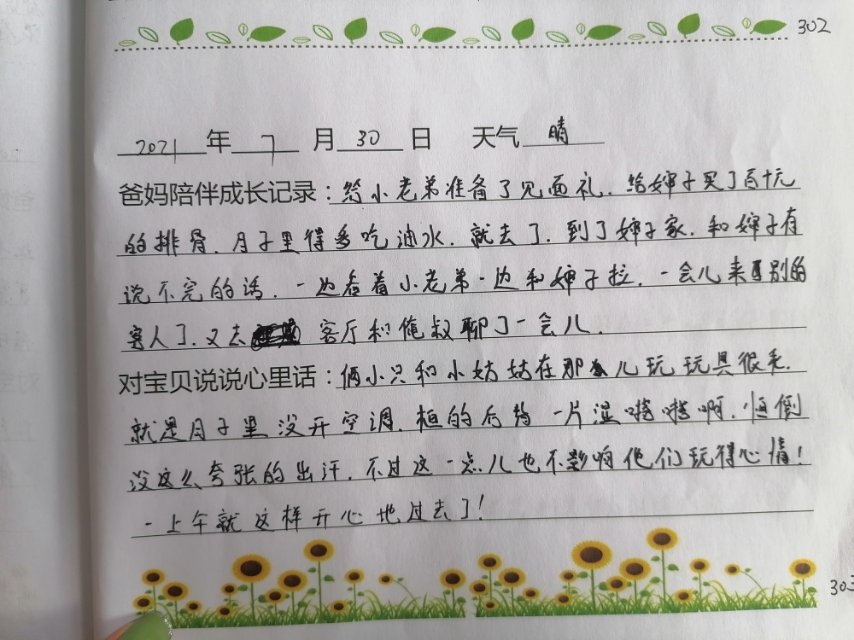 302
2021年7月30日 天气晴
爸妈陪伴成长记录:给小老弟准备了见面礼.给婶子买了百十元
的排骨.月子里得多吃油水.就去了.到了婶子家.和婶子有
说不完的话.一边看着小老弟一边和婶子拉.一会儿来了别的
客人了.又去客厅和俺叔聊了一会儿.
对宝贝说说心里话:俩小只和小姑姑在那儿玩玩具很乐.
就是月子里没开空调.桓的后背一片湿嗒嗒啊.恒倒
没这么夸张的出汗.不过这一点儿也不影响他们玩得心情!
一上午就这样开心地过去了!
303